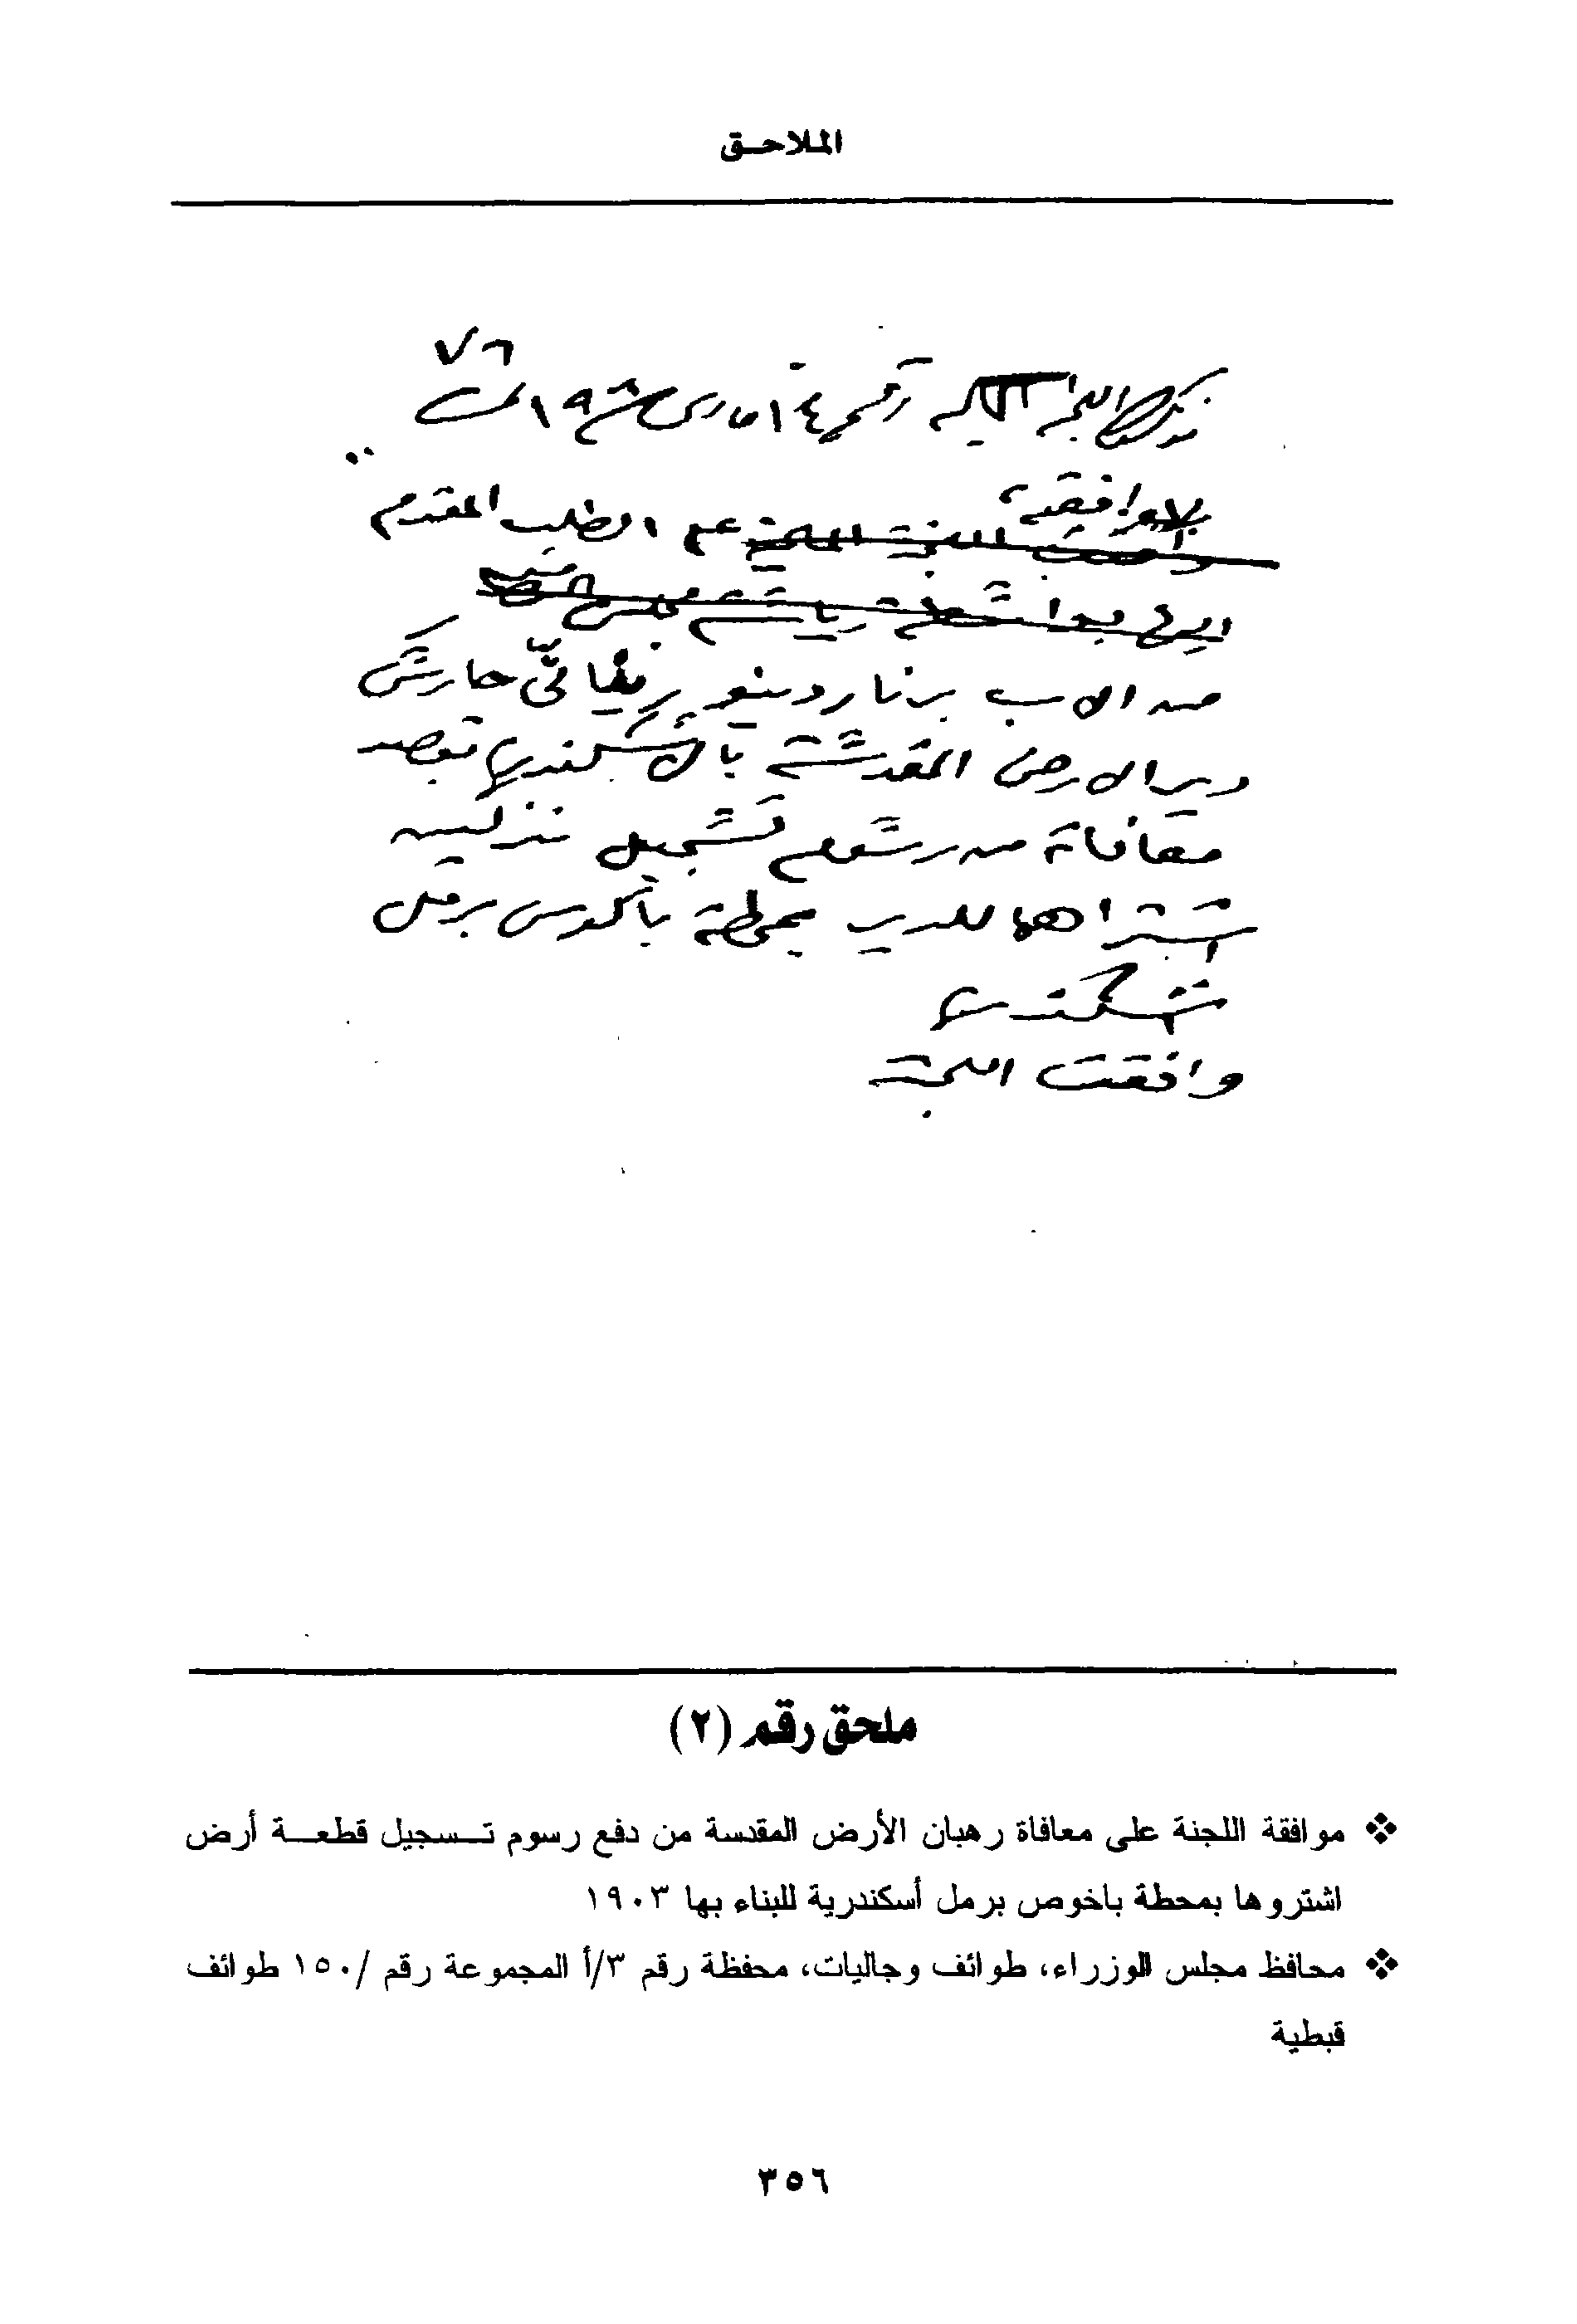 الملاحق
٧٦
رقم ١٤ مارس
بالموافقة على الطلب المقدم
من الاب برناردينو حارس
دير الارض المقدسة بالاسكندرية بقصد
معافاة من رسوم تسجيل منزلين
اشتراهما للدير بمحطة باكوس برمل
اسكندرية
وافقت اللجنة
ملحق رقم (٢)
❖ موافقة اللجنة على معافاة رهبان الأرض المقدسة من دفع رسوم تسجيل قطعة أرض
اشتروها بمحطة باخوص برمل أسكندرية للبناء بها ١٩٠٣
❖ محافظ مجلس الوزراء، طوائف وجاليات، محفظة رقم ٣/أ المجموعة رقم /١٥٠ طوائف
قبطية
٣٥٦